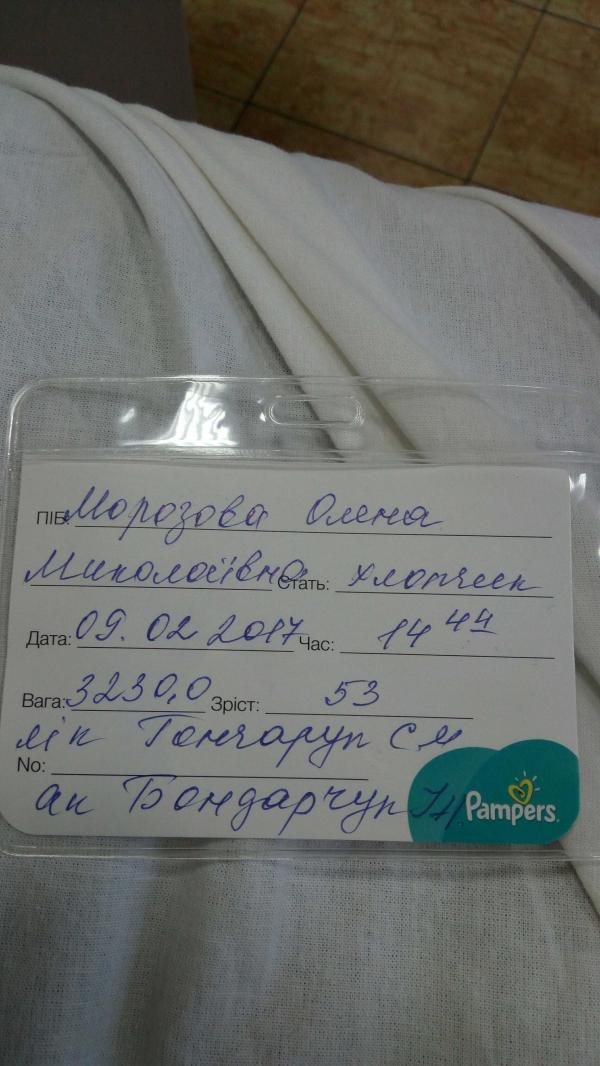 ПІБ: Морозова Олена
Миколаївна Стать: хлопчик
Дата: 09.02 2017 Час: 14 44
Вага: 3230,0 Зріст: 53
лік Гончарук С М
No:
ак Бондарчук
Pampers.